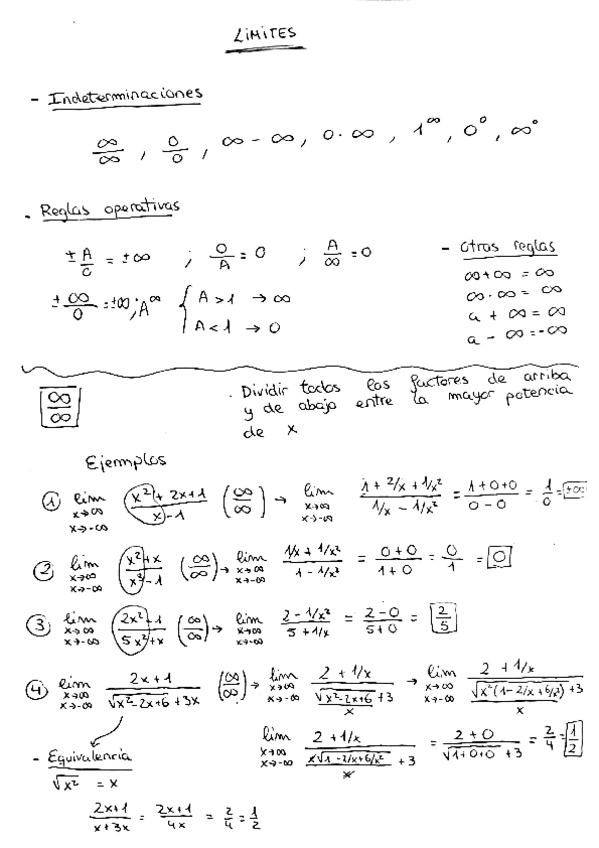 LIMITES
- Indeterminaciones
∞/∞ , 0/0 , ∞ - ∞ , 0 · ∞ , 1^∞ , 0^0 , ∞^0
- Reglas operativas
± A/c = ±∞ ; 0/A = 0 ; A/∞ = 0
± ∞/0 = ±∞ ; A^∞ { A > 1 → ∞
A < 1 → 0
- Otras reglas
∞ + ∞ = ∞
∞ · ∞ = ∞
a + ∞ = ∞
a - ∞ = -∞
∞/∞
. Dividir todos los factores de arriba
y de abajo entre la mayor potencia
de x
Ejemplos
① lim x→∞ x→-∞ (x² + 2x + 1)/(x - 1) (∞/∞) → lim x→∞ x→-∞ (1 + 2/x + 1/x²)/(1/x - 1/x²) = (1 + 0 + 0)/(0 - 0) = 1/0 = ±∞
② lim x→∞ x→-∞ (x² + x)/(x³ - 1) (∞/∞) → lim x→∞ x→-∞ (1/x + 1/x²)/(1 - 1/x³) = (0 + 0)/(1 + 0) = 0/1 = 0
③ lim x→∞ x→-∞ (2x² - 1)/(5x² + x) (∞/∞) → lim x→∞ x→-∞ (2 - 1/x²)/(5 + 1/x) = (2 - 0)/(5 + 0) = 2/5
④ lim x→∞ x→-∞ (2x + 1)/(√(x² - 2x + 6) + 3x) (∞/∞) → lim x→∞ x→-∞ (2 + 1/x)/(√(x² - 2x + 6)/x + 3) → lim x→∞ x→-∞ (2 + 1/x)/(√(x²(1 - 2/x + 6/x²))/x + 3)
lim x→∞ x→-∞ (2 + 1/x)/(x√(1 - 2/x + 6/x²)/x + 3) = (2 + 0)/(√(1 + 0 + 0) + 3) = 2/4 = 1/2
- Equivalencia
√x² = x
(2x + 1)/(x + 3x) = (2x + 1)/4x = 2/4 = 1/2